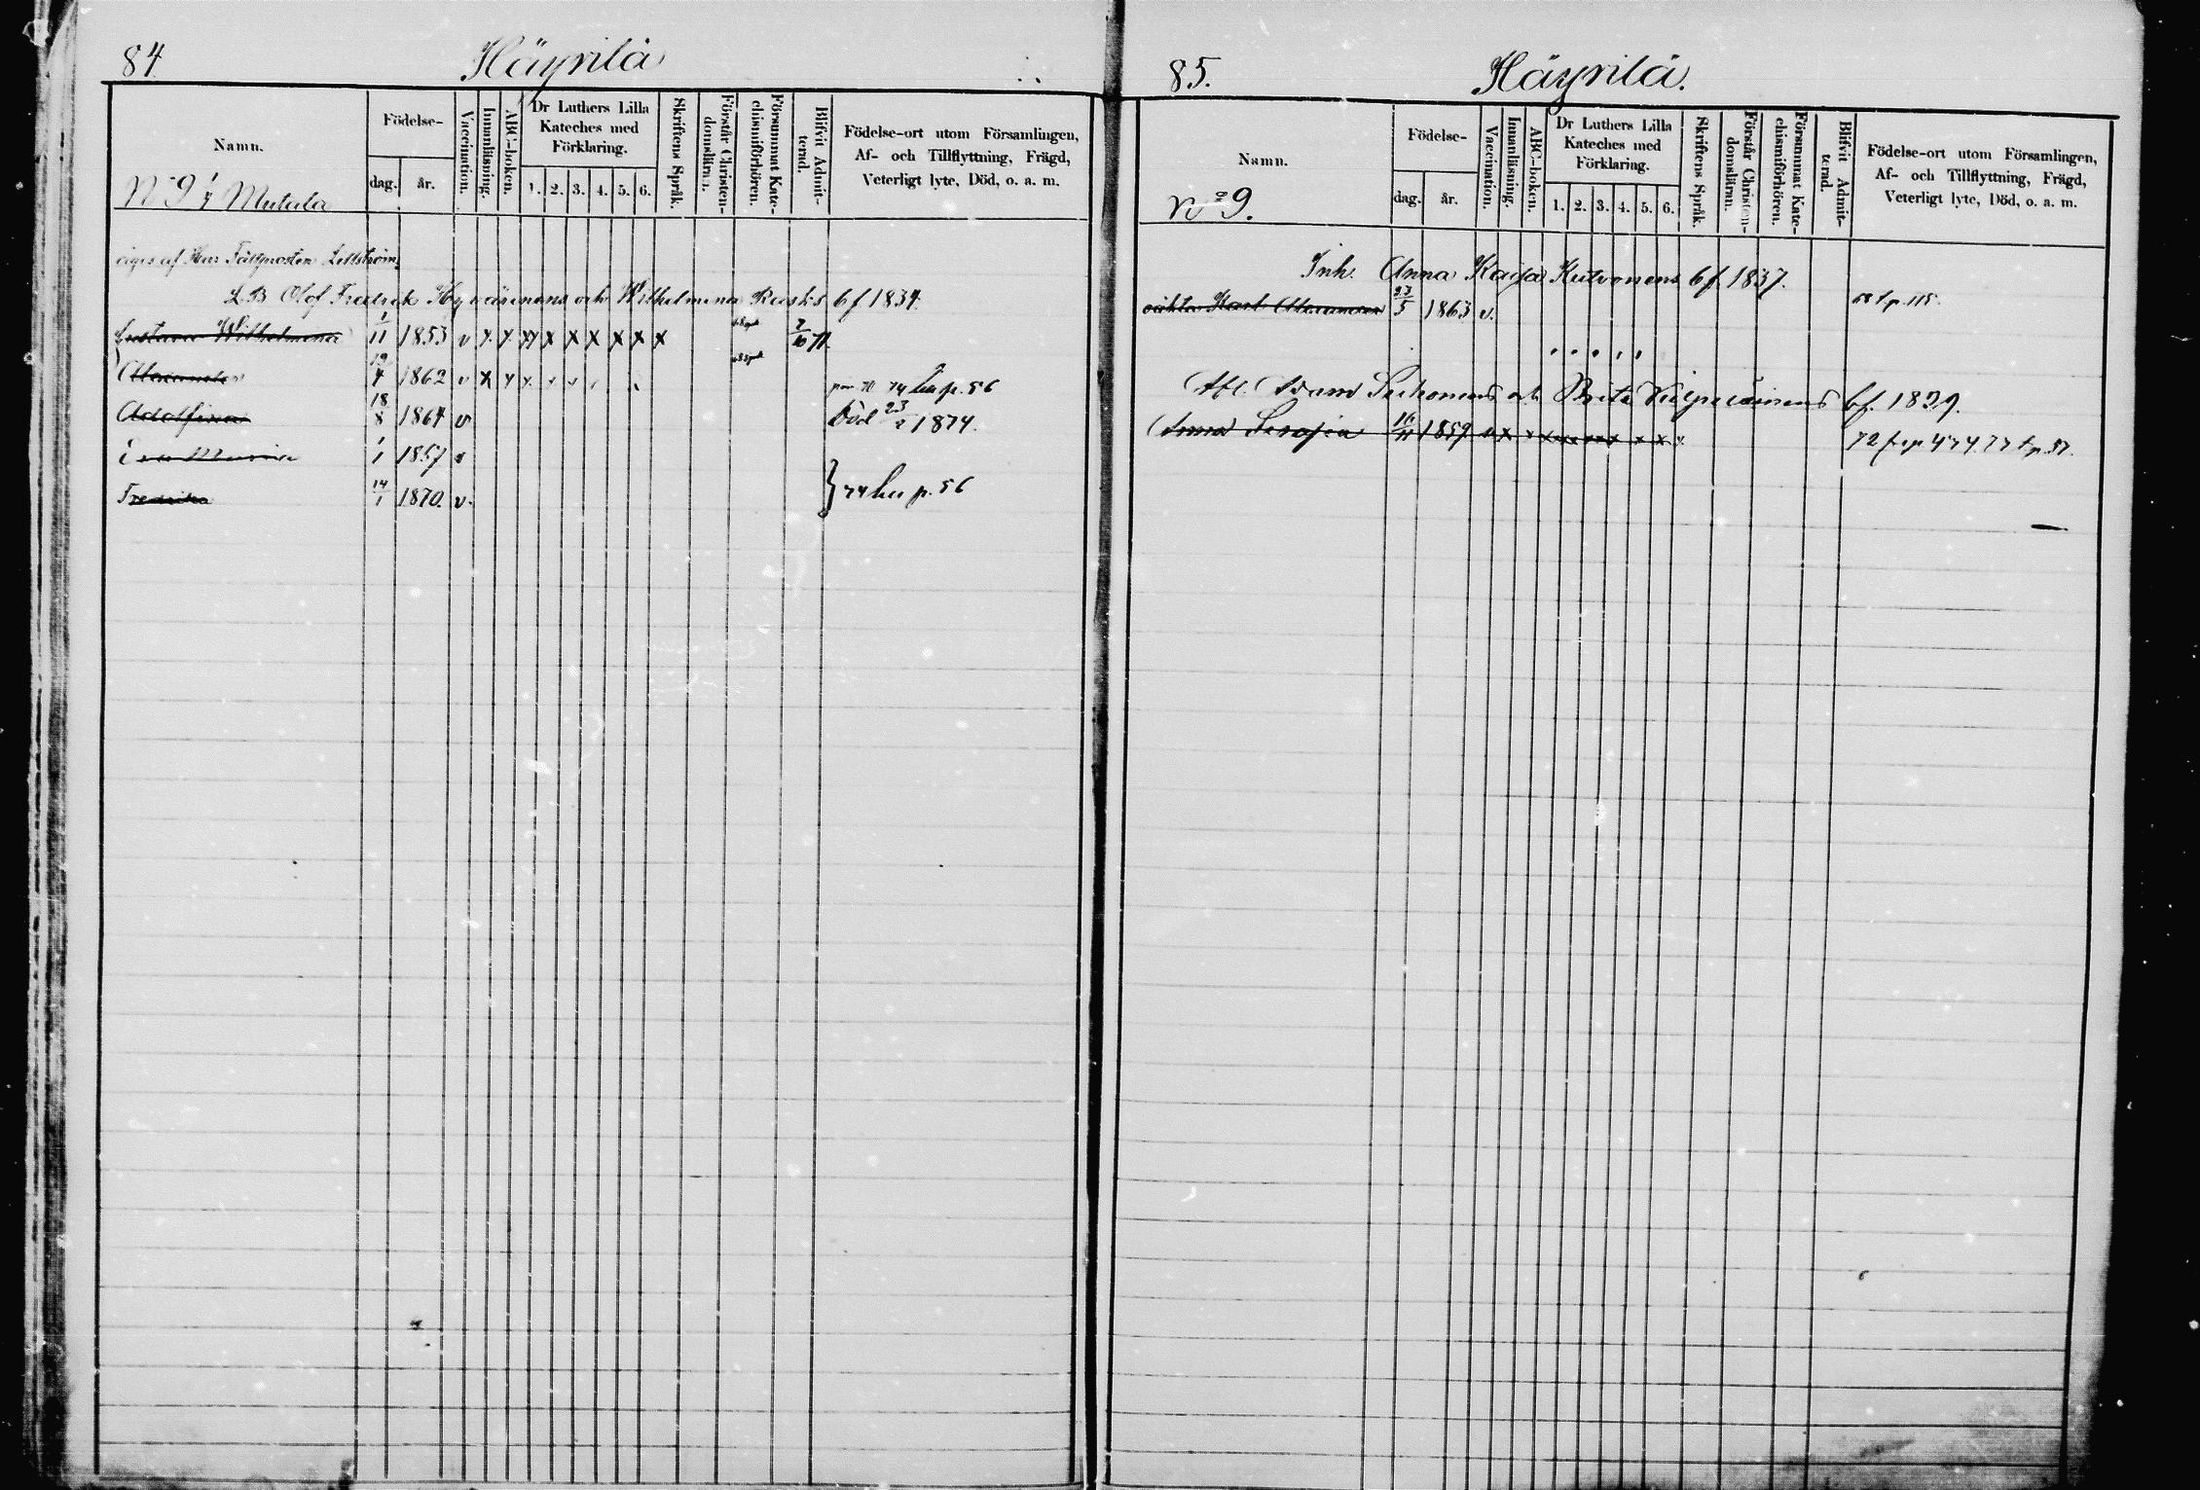 84
Häyrilä
Namn.
Födelse-
dag.
år.
Vaccination.
Innanläsning.
ABC-boken.
Dr Luthers Lilla
Kateches med
Förklaring.
1. 2. 3. 4. 5. 6.
Skriftens Språk.
Förstår Christen-
domsläran.
Försummat Kate-
chismiförhören.
Blifvit Admit-
terad.
Födelse-ort utom Församlingen,
Af- och Tillflyttning, Frägd,
Veterligt lyte, Död, o. a. m.
No 9 Mutala
äges af Herr Fältprosten
L B Olof Fredrik och Wilhelmina bf 1834.
Gustava Wilhelmina 1/11 1853 v x x x x x x x x x 7/10 71
Alexander 19/4 1862 v x x x 74 p. 56
Adolfina 18/8 1864 v Död 23/2 1874.
Eva Maria 1/1 1857 v
Fredrika 14/1 1870. v. } 74 p. 56
85.
Häyrilä.
Namn.
Födelse-
dag.
år.
Vaccination.
Innanläsning.
ABC-boken.
Dr Luthers Lilla
Kateches med
Förklaring.
1. 2. 3. 4. 5. 6.
Skriftens Språk.
Förstår Christen-
domsläran.
Försummat Kate-
chismiförhören.
Blifvit Admit-
terad.
Födelse-ort utom Församlingen,
Af- och Tillflyttning, Frägd,
Veterligt lyte, Död, o. a. m.
No 9.
Inh. Anna Kaisa Kutvonens bf. 1837.
oäkta Karl 23/5 1863 v. p. 115.
Adam och Brita bf. 1829.
Anna 16/11 1859 v x x x x x x x x x 72 p. 474. 77 p. 37.